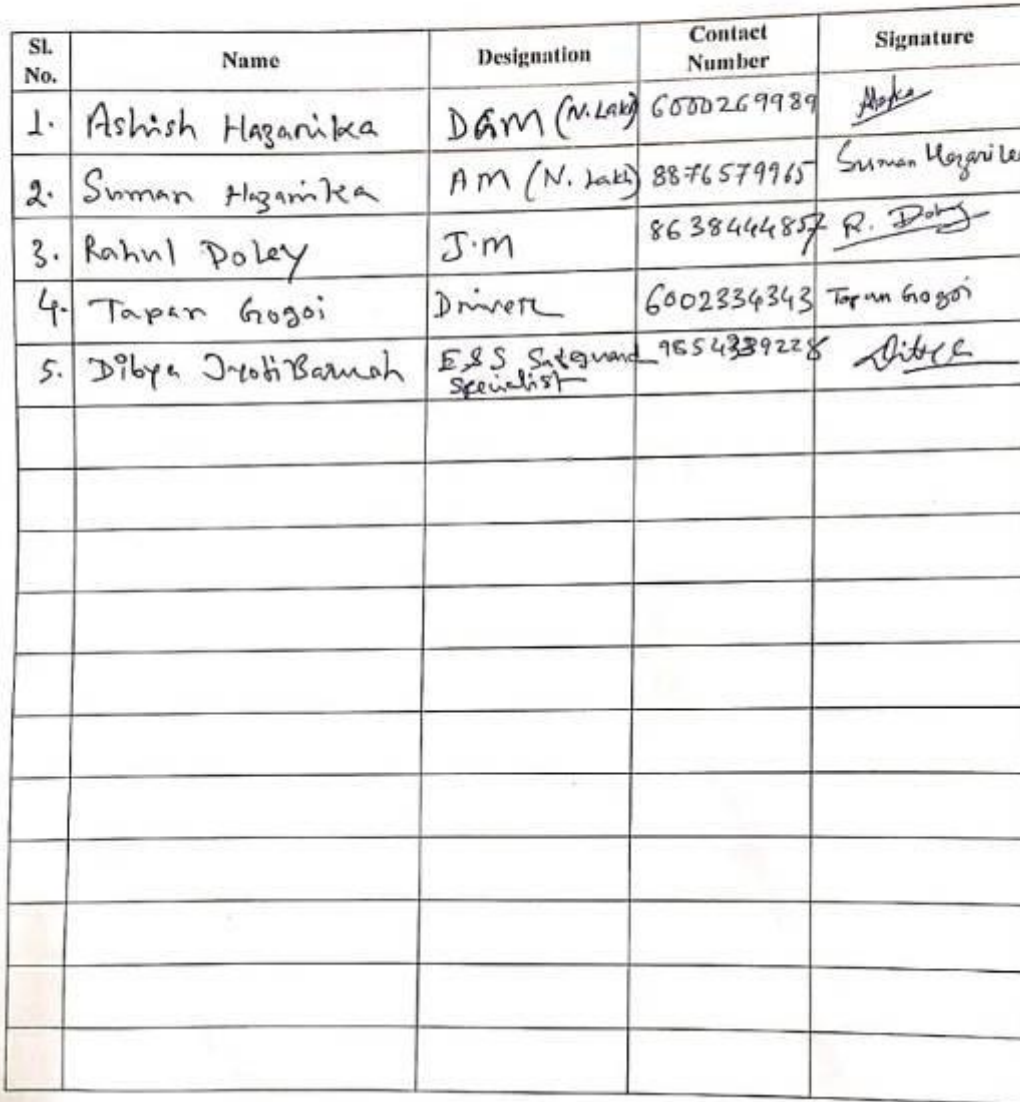 Sl. No. Name Designation Contact Number Signature
1. Ashish Hazarika DGM (N.Lak) 6000269989
2. Suman Hazarika AM (N. Lakh) 8876579965 Suman Hazarika
3. Rahul Doley J.M 8638444857 R. Doley
4. Tapan Gogoi Driver 6002334343 Tapan Gogoi
5. Dibya Jyoti Baruah E&S Safeguard Specialist Dibya